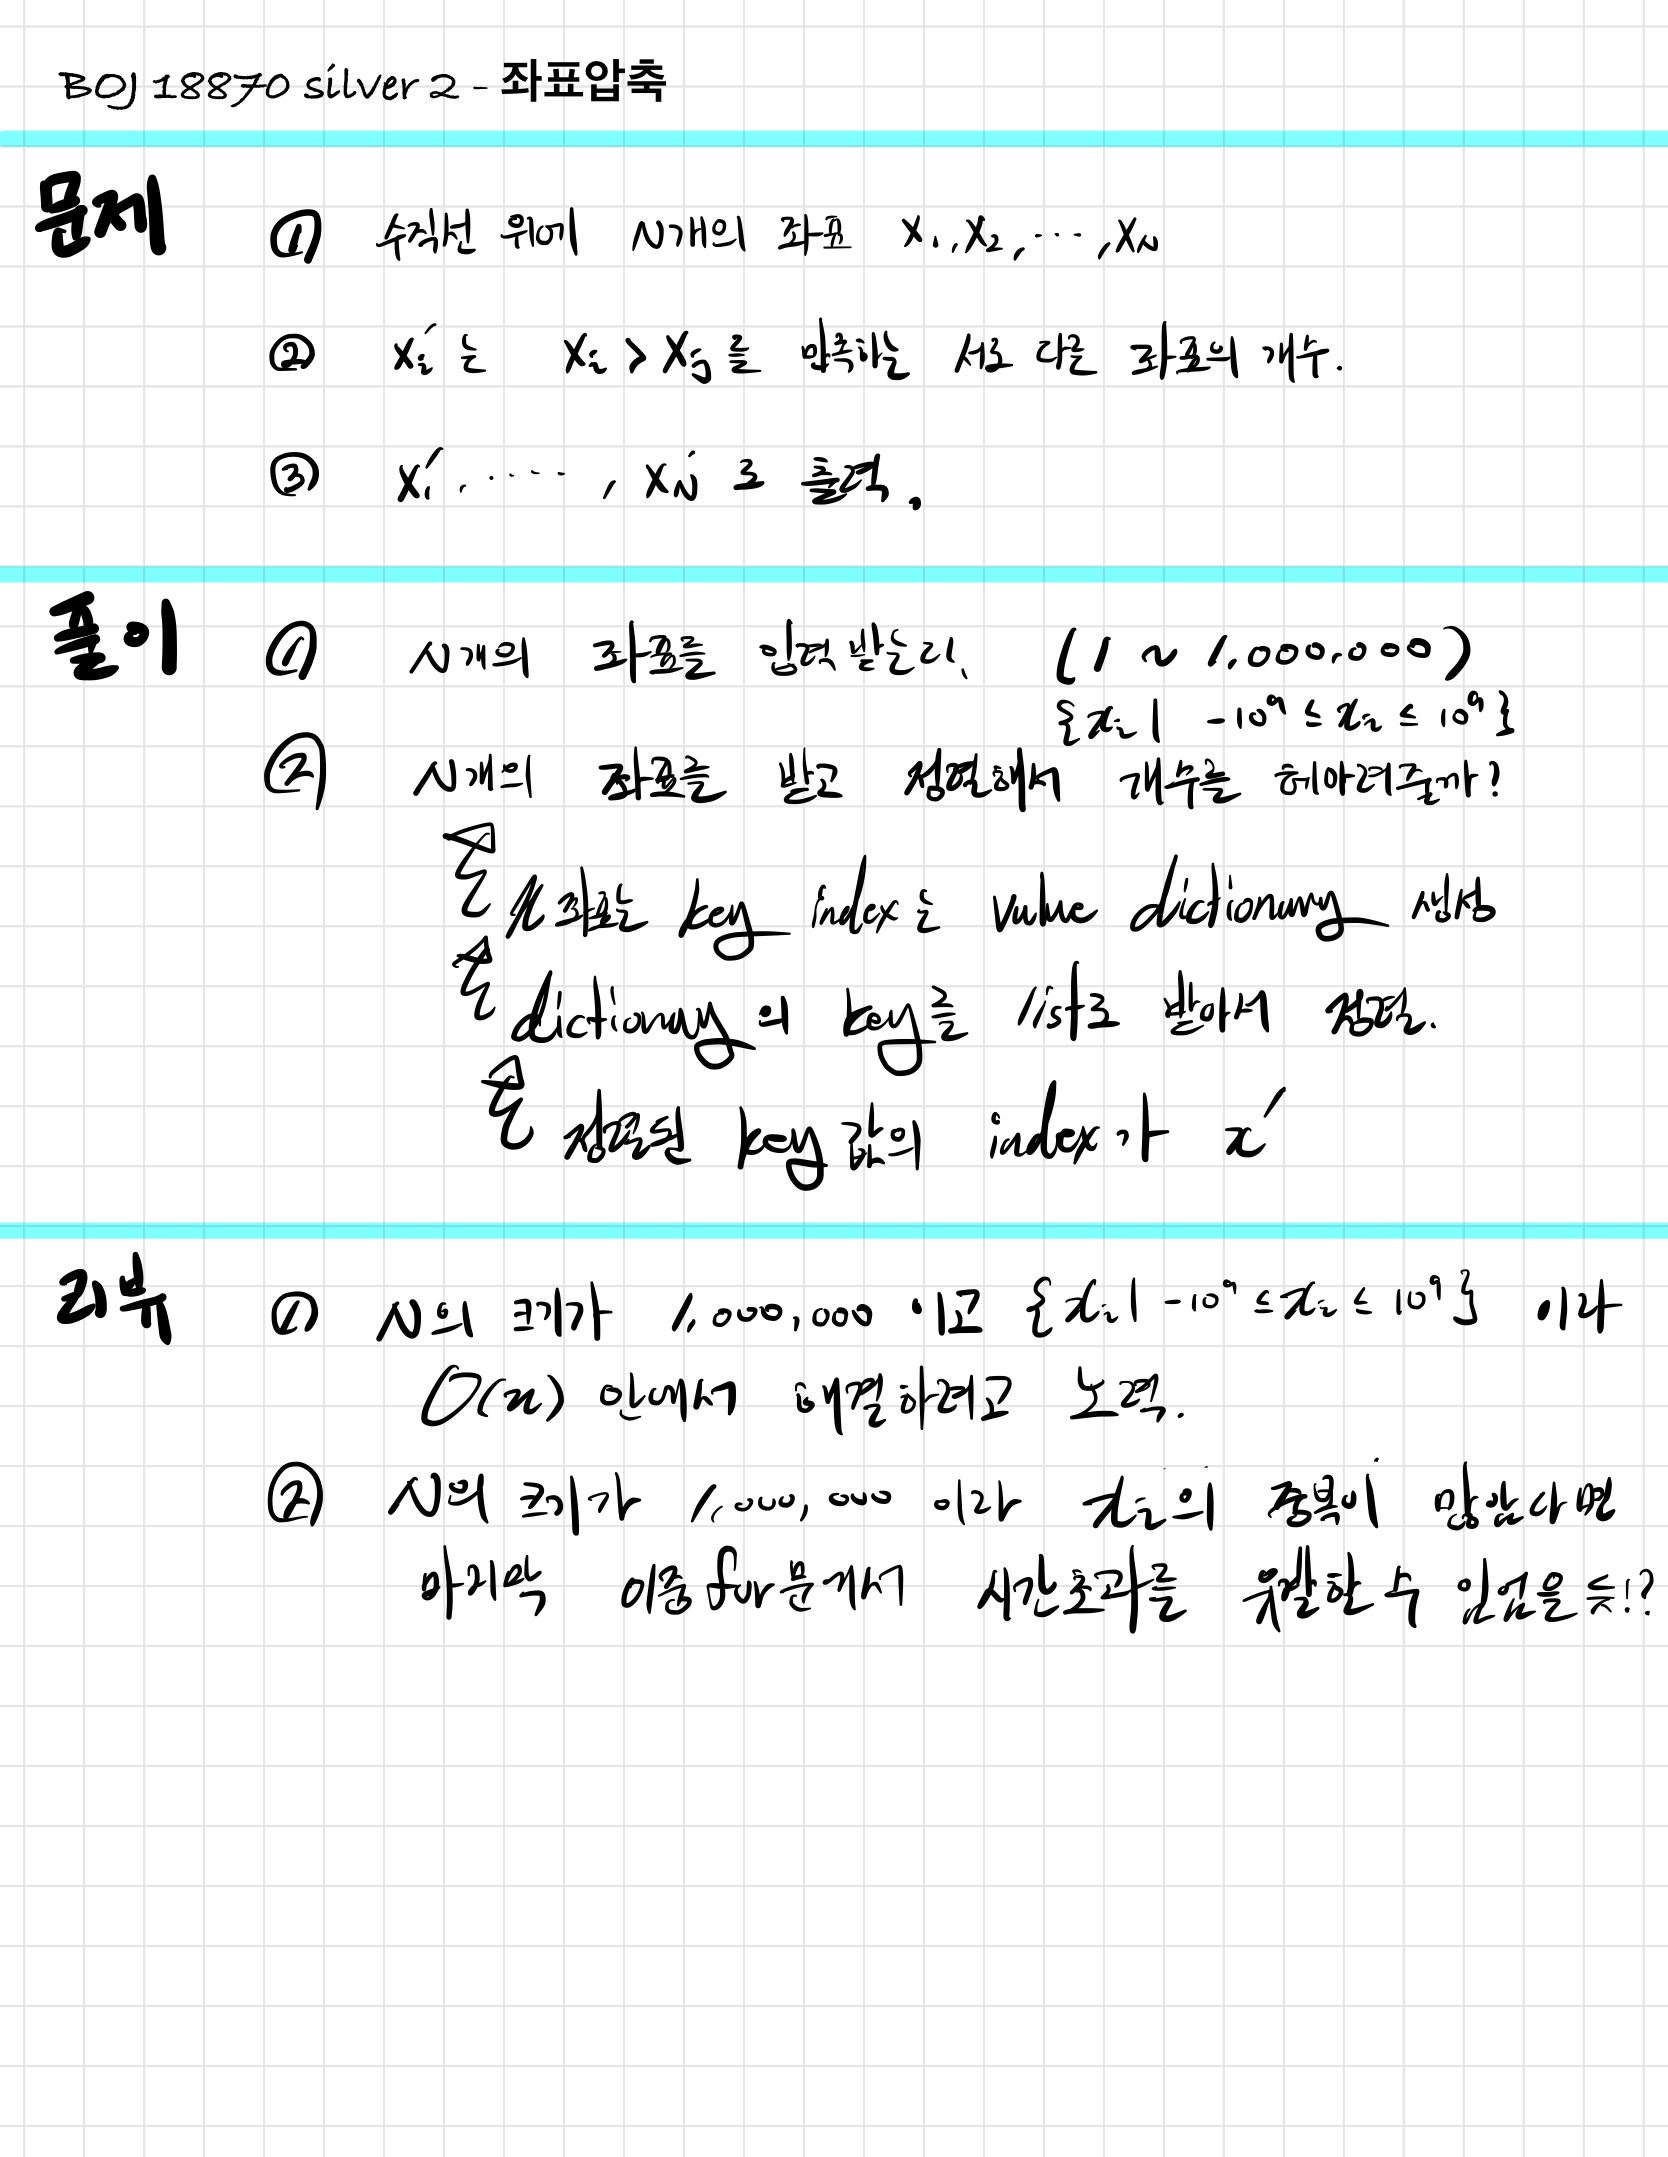 BOJ 18870 silver 2 - 좌표압축
문제
① 수직선 위에 N개의 좌표 X₁, X₂, ..., X_N
② Xᵢ′ 는 Xᵢ > Xⱼ를 만족하는 서로 다른 좌표의 개수.
③ X₁′, ....., X_N′ 로 출력.
풀이
① N개의 좌표를 입력 받는다. (1 ~ 1,000,000)
{xᵢ | -10⁹ ≤ xᵢ ≤ 10⁹}
② N개의 좌표를 받고 정렬해서 개수를 헤아려줄까?
x좌표는 key index는 value dictionary 생성
dictionary의 key를 list로 받아서 정렬.
정렬된 key 값의 index가 x′
리뷰
① N의 크기가 1,000,000 이고 {xᵢ | -10⁹ ≤ xᵢ ≤ 10⁹} 이라
O(n) 안에서 해결하려고 노력.
② N의 크기가 1,000,000 이라 xᵢ의 중복이 많았다면
마지막 이중 for문에서 시간초과를 유발할 수 있었을 듯!?